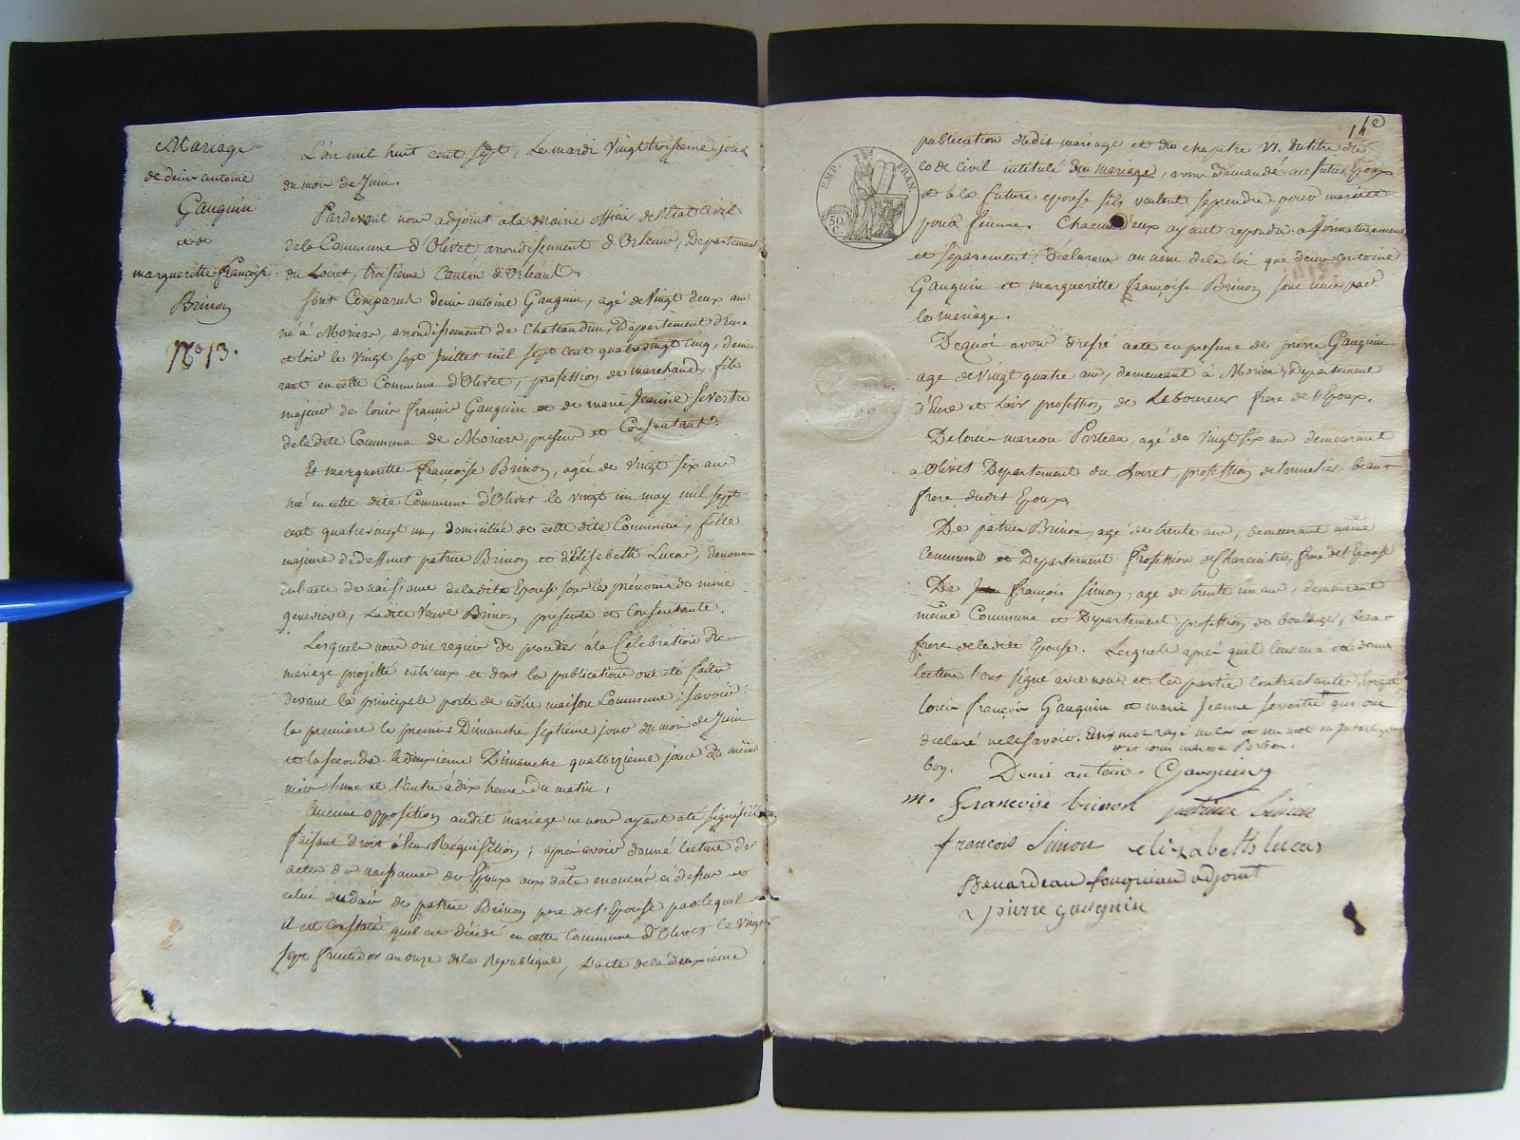 Mariage
de denis antoine
Gauguin
et de
margueritte françoise
Brinon
N.º 13.
L'an mil huit cent sept, le mardi vingt troisieme jour
du mois de Juin.
Pardevant nous adjoint a la mairie officier de l'état Civil
de la Commune d'Olivet arrondissement d'Orleans, Département
du Loiret, troisieme Canton d'Orléans
Sont Comparus denis antoine Gauguin, agé de vingt deux ans
né à Moriers, arrondissement de Chateaudun, Département d'Eure
et loir le vingt sept Juillet mil sept cent quatrevingt cinq, demeu
rant en cette Commune d'Olivet, profession de marchand, fils
majeur de louis françois Gauguin et de marie Jeanne Sevestre
de ladite Commune de Moriers, présens et Consentants
Et margueritte françoise Brinon, agée de vingt six ans
née en cette dite Commune d'Olivet le vingt un may mil sept
cent quatrevingt un, domiciliée de cette dite Commune, fille
majeure de deffunt patrice Brinon et d'Elisabeth Lucas, denommée
en l'acte de naissance de ladite Epouse sous les prénoms de marie
genevieve, Ladite veuve Brinon presente et Consentante.
Lesquels nous ont requis de proceder à la Célébration du
mariage projetté entr'eux et dont les publications ont été faites
devant la principale porte de nôtre maison Commune; Savoir:
la premiere le premier Dimanche septieme jour du mois de Juin
et la seconde le deuxieme Dimanche quatorzieme jour du même
mois l'une et l'autre à dix heures du matin,
Aucune opposition audit mariage ne nous ayant été signifiée
faisant droit à leur Réquisition; après avoir donné lecture des
actes de naissance des Epoux aux dates enoncées ci dessus et
celui du décès de patrice Brinon pere de l'Epouse par lequel
il est constaté qu'il est décédé en cette Commune d'Olivet le vingt
sept fructidor an onze de la République, L'acte de la deuxieme
14e
EMP. FRAN.
50
C.
publication dudit mariage et du chapitre VI. du titre du
Code Civil intitulé du mariage, avons demandé au futur Epoux
et à la future epouse s'ils veulent se prendre pour mari et
pour femme. Chacun d'eux ayant repondu affirmativement
et séparement; déclarons au nom de la loi que denis antoine
Gauguin et margueritte françoise Brinon sont unis par
le mariage.
De quoi avons dressé acte en presence de pierre Gauguin
age de vingt quatre ans, demeurant à Moriers, Département
d'Eure et Loir profession de Laboureur frere de l'Epoux.
De louis marcou Porteau, agé de vingt six ans demeurant
à Olivet Département du Loiret, profession de tonnelier beau
frere dudit Epoux
De patrice Brinon, agé de trente ans, demeurant même
Commune et Département profession de Charcutier, frere de l'Epouse
De françois Simon, agé de trente un ans, demeurant
même Commune et Département, profession de boulanger, beau
frere de ladite Epouse. Lesquels après qu'il leur en a été donné
lecture l'ont signé avec nous et les parties contractantes, excepté
louis françois Gauguin et marie Jeanne Sevestre qui ont
déclaré ne le savoir.
bon.
Denis antoine Gauguin
m. francoise brinon patrice brinon
francois Simon elizabeth lucas
adjoint
pierre gauguin